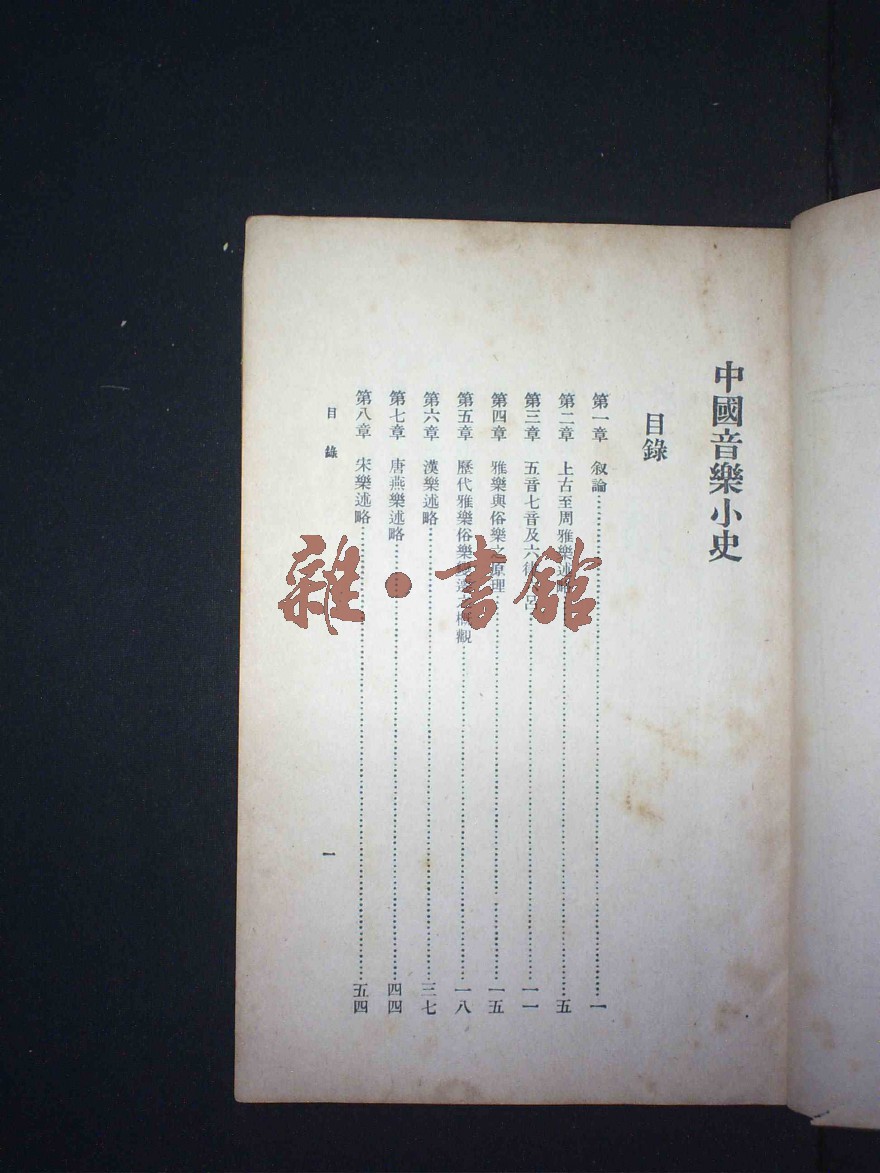 中國音樂小史
目錄
第一章 叙論……一
第二章 上古至周雅樂述略……五
第三章 五音七音及六律……一一
第四章 雅樂與俗樂之原理……一五
第五章 歷代雅樂俗樂之概觀……一八
第六章 漢樂述略……三七
第七章 唐燕樂述略……四四
第八章 宋樂述略……五四
目錄
一
雜·書館